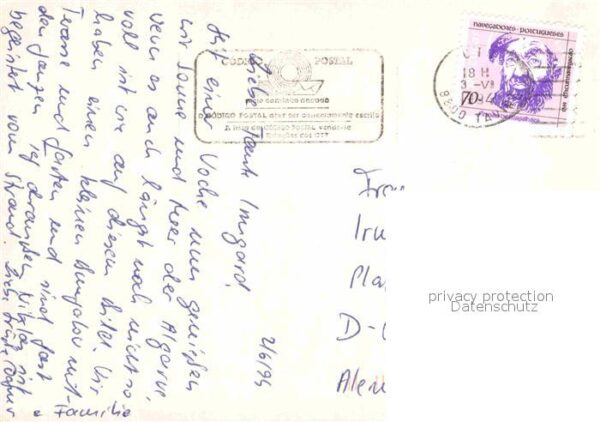 2/6/94
Liebe Tante Irmgard!
Seit einer Woche nun genießen
wir Sonne und Meer der Algarve,
wenn es auch längst noch nicht so
voll ist wie auf diesem Bild. Wir
haben einen kleinen Bungalow mit
Terasse und Garten und sind fast
den ganzen Tag draußen. Niklas ist
begeistert vom Strand. Liebe Grüße
Familie
CÓDIGO POSTAL
O CÓDIGO POSTAL deve ser correctamente escrito
NAVEGADORES PORTUGUESES
18 H
70
Frau
D-
privacy protection
Datenschutz